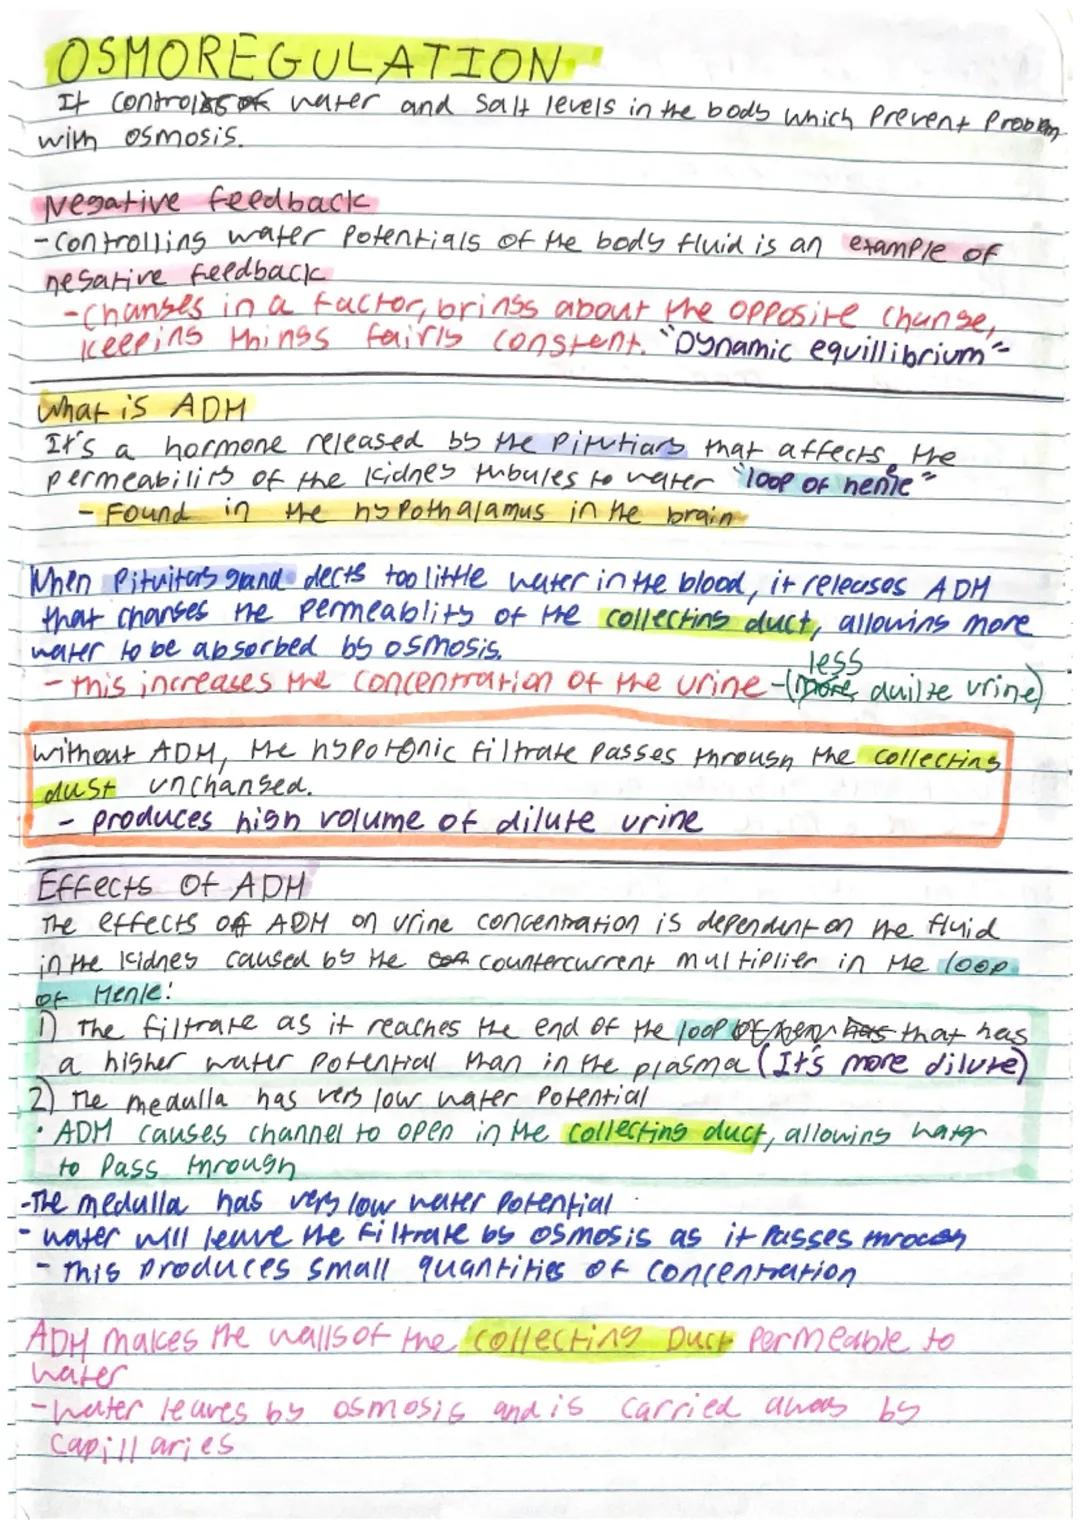 OSMOREGULATION
It controls of water and salt levels in the body which prevent problem
with osmosis.
Negative feedback
- controlling water potentials of the body fluid is an example of
negative feedback
- changes in a factor, brings about the opposite change,
keeping things fairly constent. "Dynamic equillibrium"
what is ADH
It's a hormone released by the pitutiary that affects the
permeability of the kidney tubules to water "loop of henle"
- Found in the hypothalamus in the brain
When pituitary gland dects too little water in the blood, it releases ADH
that changes the permeablity of the collecting duct, allowing more
water to be absorbed by osmosis.
less
- this increases the concentration of the urine - (more duilte urine)
without ADH, the hypotonic filtrate passes through the collecting
dust unchanged.
- produces high volume of dilute urine
Effects of ADH
The effects of ADH on urine concentration is dependent on the fluid
in the kidney caused by the countercurrent multiplier in the loop
of Henle:
1) The filtrate as it reaches the end of the loop of henle has that has
a higher water potential than in the plasma (It's more dilute)
2) The medulla has very low water potential
• ADH causes channel to open in the collecting duct, allowing water
to pass through
- The medulla has very low water potential
- water will leave the filtrate by osmosis as it passes through
- This produces small quantities of concentration
ADH makes the walls of the collecting Duct permeable to
water
- water leaves by osmosis and is carried away by
capillaries